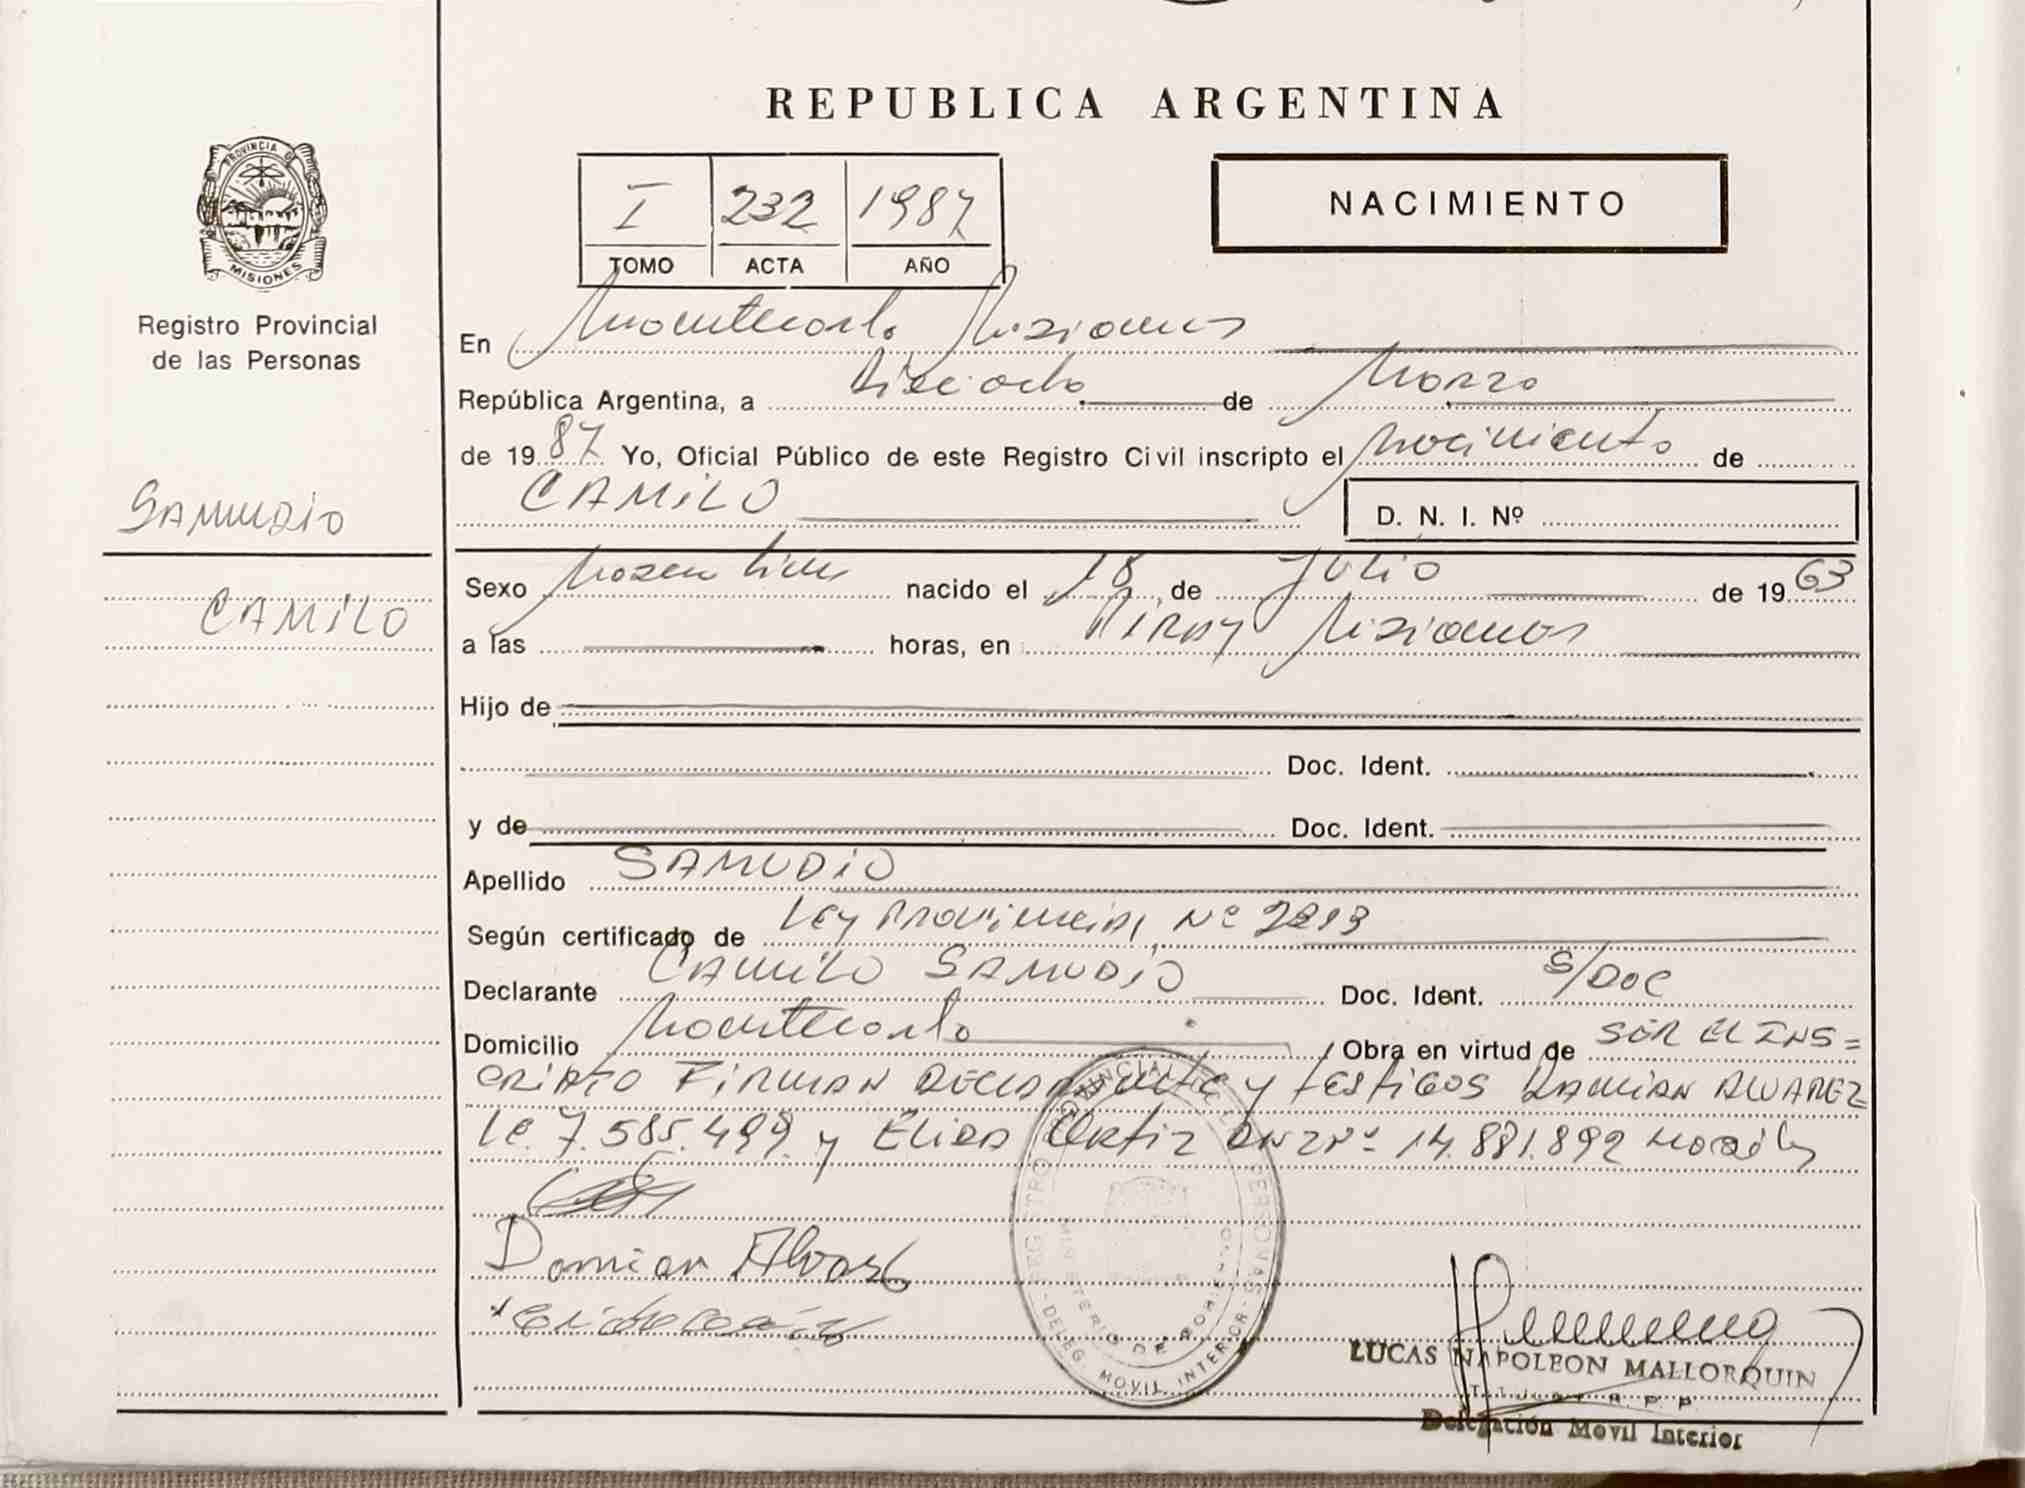 REPUBLICA ARGENTINA
PROVINCIA D
MISIONES
Registro Provincial
de las Personas
I 232 1987
TOMO ACTA AÑO
NACIMIENTO
En Montecarlo Misiones
República Argentina, a Dieciocho de Marzo
de 1987 Yo, Oficial Público de este Registro Civil inscripto el Nacimiento de
CAMILO
D. N. I. Nº
SAMUDIO
CAMILO
Sexo Masculino nacido el 18 de JULIO de 1963
a las horas, en Misiones
Hijo de
Doc. Ident.
y de Doc. Ident.
Apellido SAMUDIO
Según certificado de Ley Provincial Nº 2213
Declarante CAMILO SAMUDIO Doc. Ident. S/DOC
Domicilio Montecarlo Obra en virtud de SER EL INS=
CRIPTO FIRMAN DECLARANTE y TESTIGOS DAMIAN ALVAREZ
LE. 7.585.499 y Elida Ortiz DNI Nº 14.881.892
Damian Alvarez
REGISTRO PROVINCIAL DE LAS PERSONAS
MINISTERIO DE GOBIERNO
- DELEG. MOVIL INTERIOR -
LUCAS NAPOLEON MALLORQUIN
Delegación Movil Interior